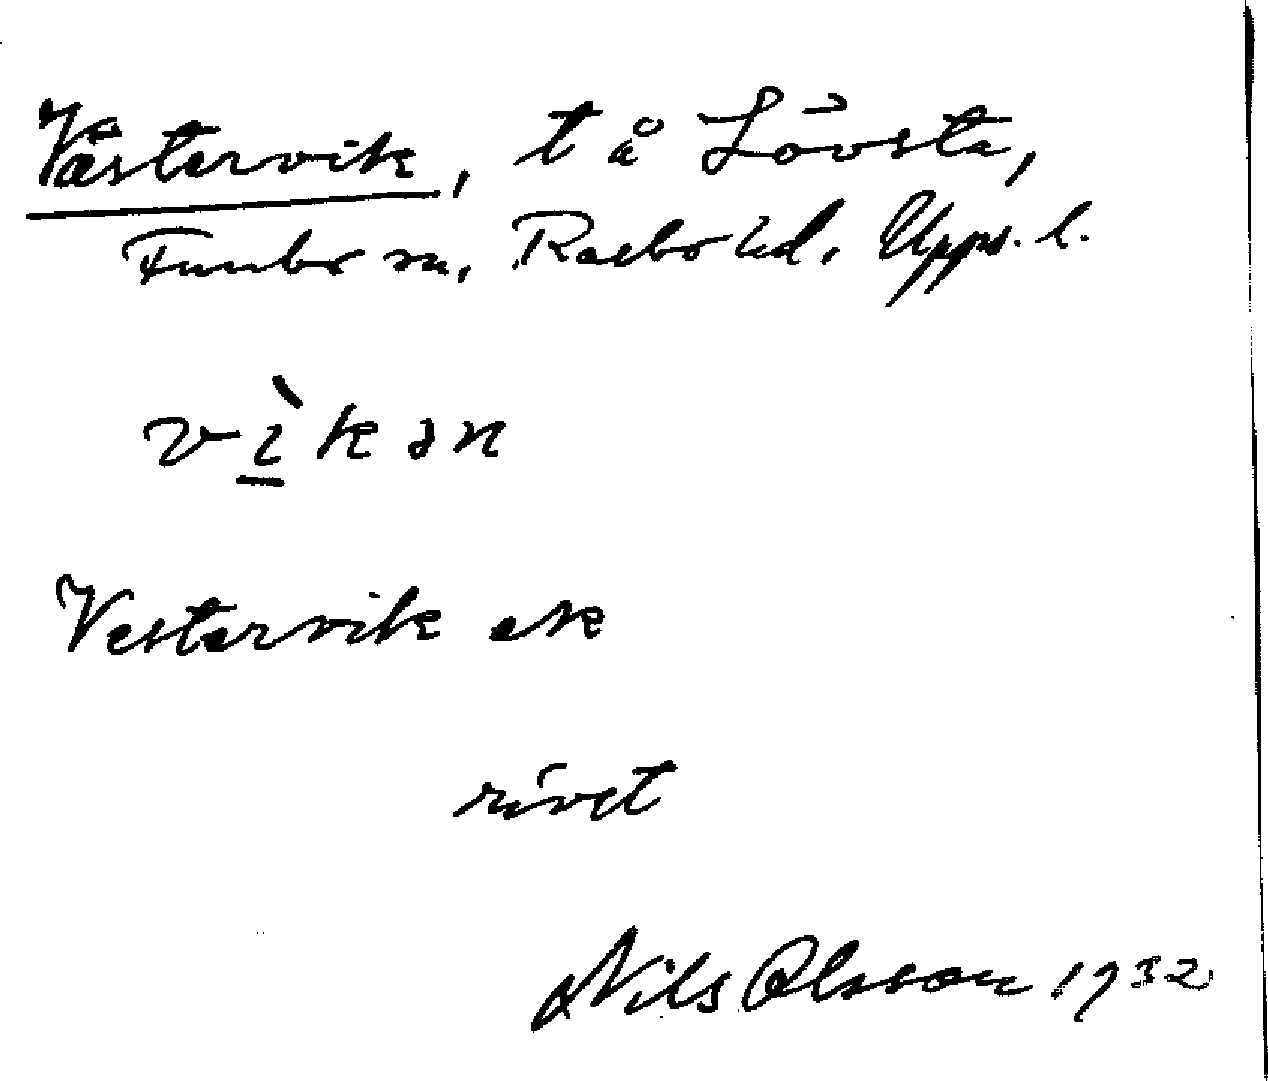 Västervik, t å Lövsta,
Funbo sn, Rasbo hd. Upps. l.
vìkən
Vestervik ek
rivet
Nils Olsson 1932